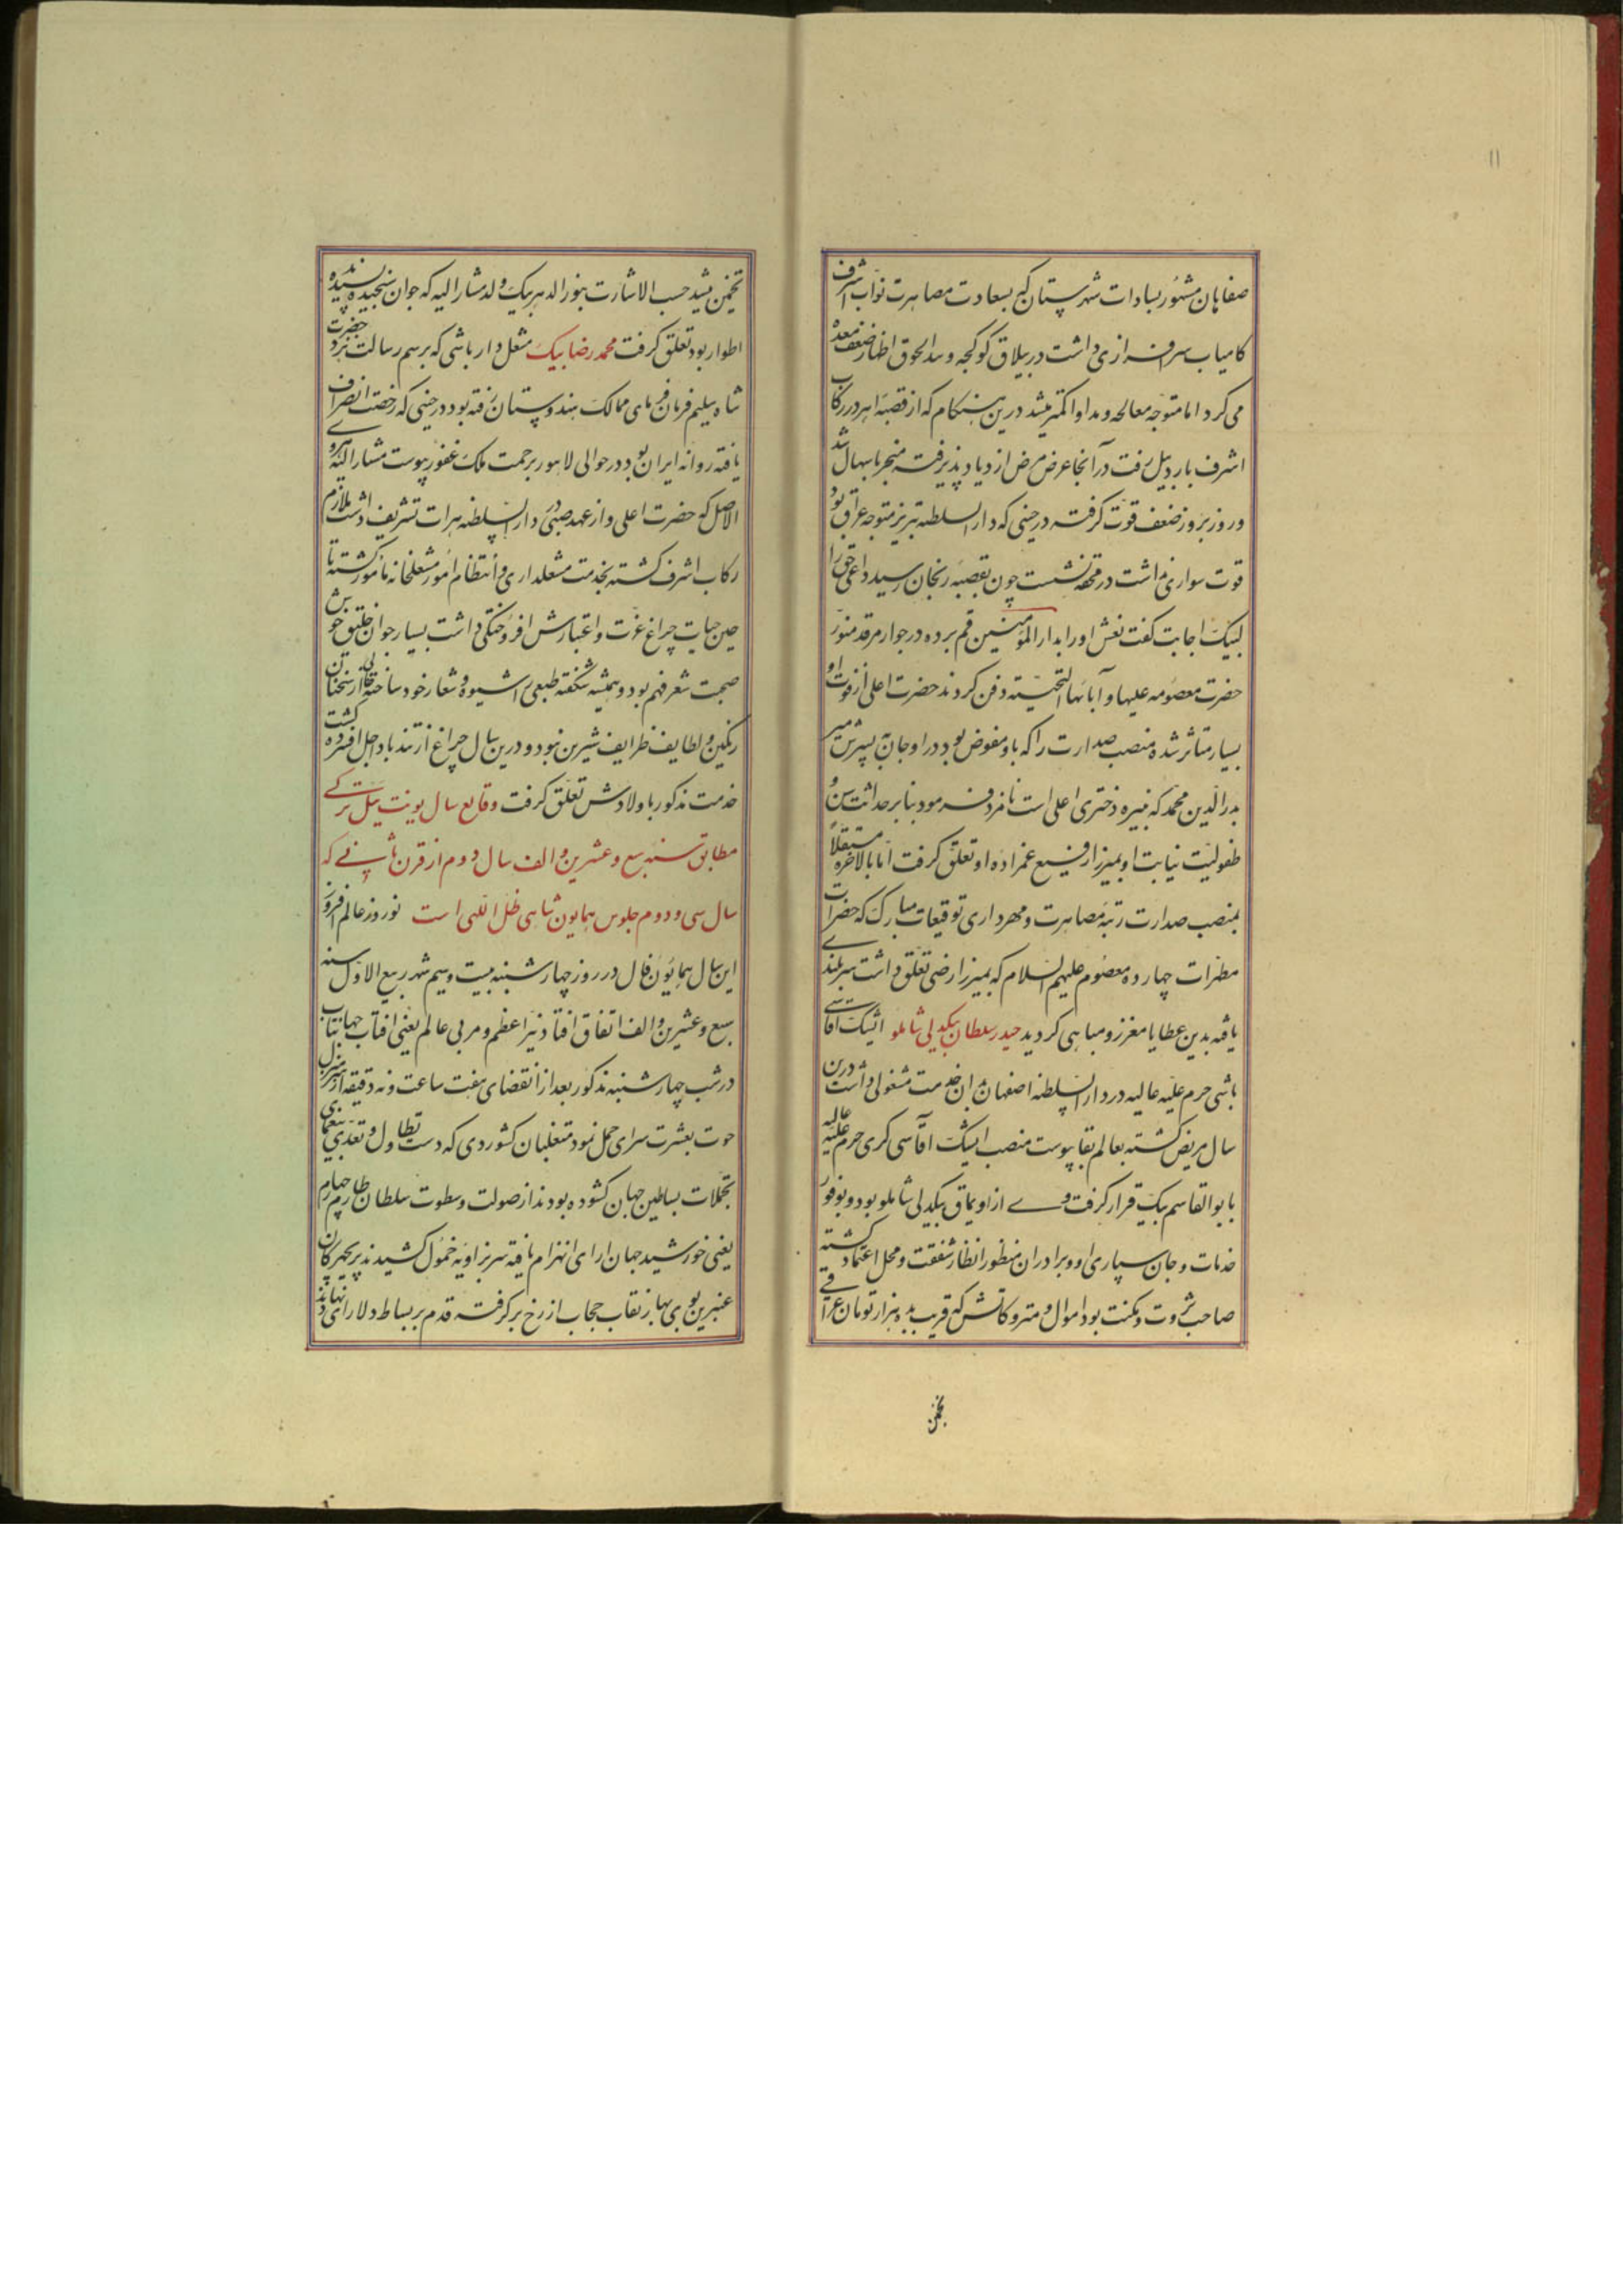 ۱۱
صفاهان مشهور بسادات شهرستان که بسعادت مصاهرت نواب اشرف
کامیاب سرافرازی داشت در ییلاق کوکجه و سدالحوق اظهار ضعف معده
می کرد اما متوجه معالجه و مداوا کمتر میشد درین هنکام که از قصبه اهر در رکاب
اشرف باردبیل رفت در آنجا عرض مرض ازدیاد پذیرفته منجر باسهال شد
و روز بروز ضعف قوت کرفته در حینی که دار السلطنه تبریز متوجه عراق بود
قوت سواری نداشت در محفه نشست چون بقصبه زنجان رسید داعی حق را
لبیک اجابت کفت نعش او را بدار المؤمنین قم برده در جوار مرقد منور
حضرت معصومه علیها و آبائها التحیته دفن کردند حضرت اعلی از فوت او
بسیار متاثر شده منصب صدارت را که باو مفوض بود در اوجان به پسرش میر
بدرالدین محمد که نبیره دختری اعلی است نامزد فرمود بنابر حداثت سن و
طفولیت نیابت او بمیرزا رفیع عمزاده او تعلق کرفت اما بالاخره مستقلاً
بمنصب صدارت رتبه مصاهرت و مهرداری توقیعات مبارک که حضرات
مطهرات چهارده معصوم علیهم السلام که بمیرزا رضی تعلق داشت سربلندی
یافته بدین عطایا معزز و مباهی کردید حیدر سلطان بیکدلی شاملو ایشیک اقاسی
باشی حرم علیه عالیه در دار السلطنه اصفهان بدان خدمت مشغولی داشت درین
سال مریض کشته بعالم بقا پیوست منصب ایشیک آقاسی کری حرم علیه عالیه
بابو القاسم بیک قرار کرفت وی از اویماق بیکدلی شاملو بود و بوفور
خدمات و جان سپاری او و برادران منظور انظار شفقت و محل اعتماد کشته
صاحب ثروت و مکنت بود اموال و متروکاتش که قریب بده هزار تومان عراقی
تخمین
تخمین میشد حسب الاشارت بنور الدهر بیک ولد مشار الیه که جوان سنجیده پسندیده
اطوار بود تعلق کرفت محمد رضا بیک مشعل دار باشی که برسم رسالت نزد حضرت
شاه سلیم فرمان فرمای ممالک هندوستان رفته بود در حینی که رخصت انصراف
یافته روانه ایران بود در حوالی لاهور برحمت ملک غفور پیوست مشار الیه هروی
الاصل که حضرت اعلی و از عهد صبی در دار السلطنه هرات تشریف داشت ملازم
رکاب اشرف کشته بخدمت مشعلداری و انتظام امور مشعلخانه مامور کشته تا
حین حیات چراغ عزت و اعتبارش افروختکی داشت بسیار جوان خلیق خوش
صحبت شعر فهم بود و همیشه شکفته طبعی را شیوه و شعار خود ساخته خالی از سخنان
رنکین و لطایف ظرایف شیرین نبود و درین سال چراغ از تند باد اجل افسرده کشت
خدمت مذکور باولادش تعلق کرفت وقایع سال یونت ئیل ترکی
مطابق سنه سبع و عشرین و الف سال دوم از قرن ثانی که
سال سی و دوم جلوس همایون شاهی ظل اللهی است نوروز عالم افروز
این سال همایون فال در روز چهارشنبه بیست و سیم شهر ربیع الاول سنه
سبع و عشرین و الف اتفاق افتاد نیر اعظم و مربی عالم یعنی افتاب جهانتاب
در شب چهارشنبه مذکور بعد از انقضای هفت ساعت و نه دقیقه از منزل
حوت بعشرت سرای حمل نمود متغلبان کشور دی که دست تطاول و تعدی بیغمای
تجملات بساطین جهان کشوده بودند از صولت و سطوت سلطان طارم چهارم
یعنی خورشید جهان ارای انهزام یافته سر بزاویه خمول کشیدند پریچهرکان
عنبرین بوی بهار نقاب حجاب از رخ برکرفته قدم بر بساط دلارای نهادند